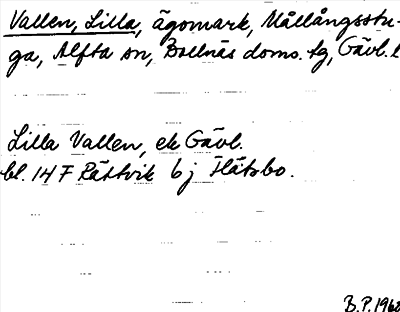 Vallen, Lilla, ägomark, Mållångsstu-
ga, Alfta sn, Bollnäs doms. tg, Gävl. l
Lilla Vallen, ek Gävl.
bl. 14 F Rättvik 6 j Flätsbo.
B.P. 1968